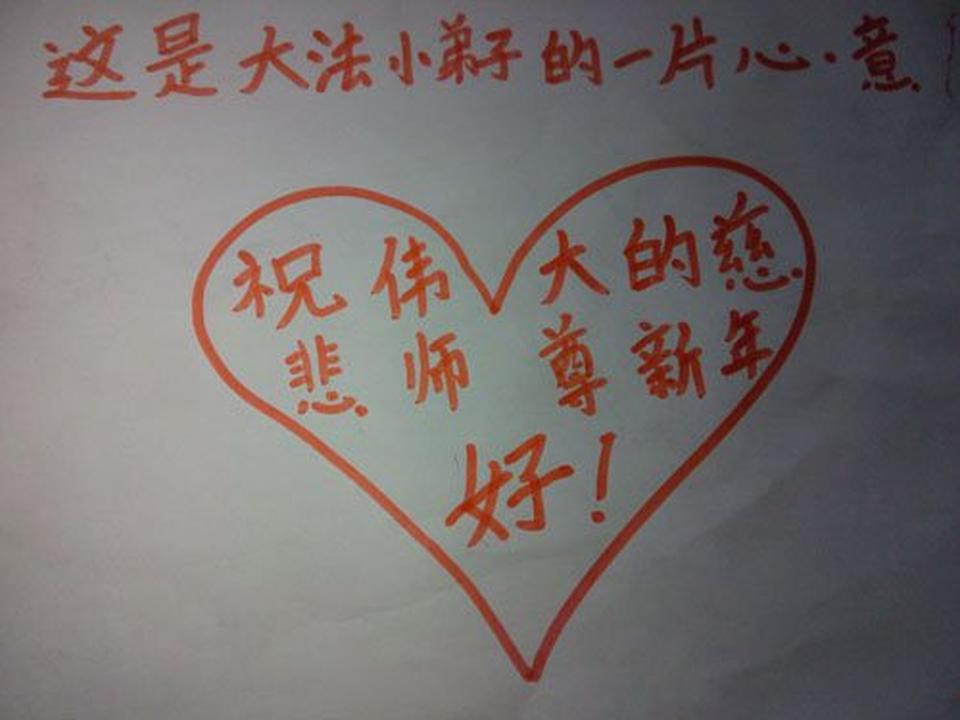 这是大法小弟子的一片心意
祝伟大的慈
悲师尊新年
好！